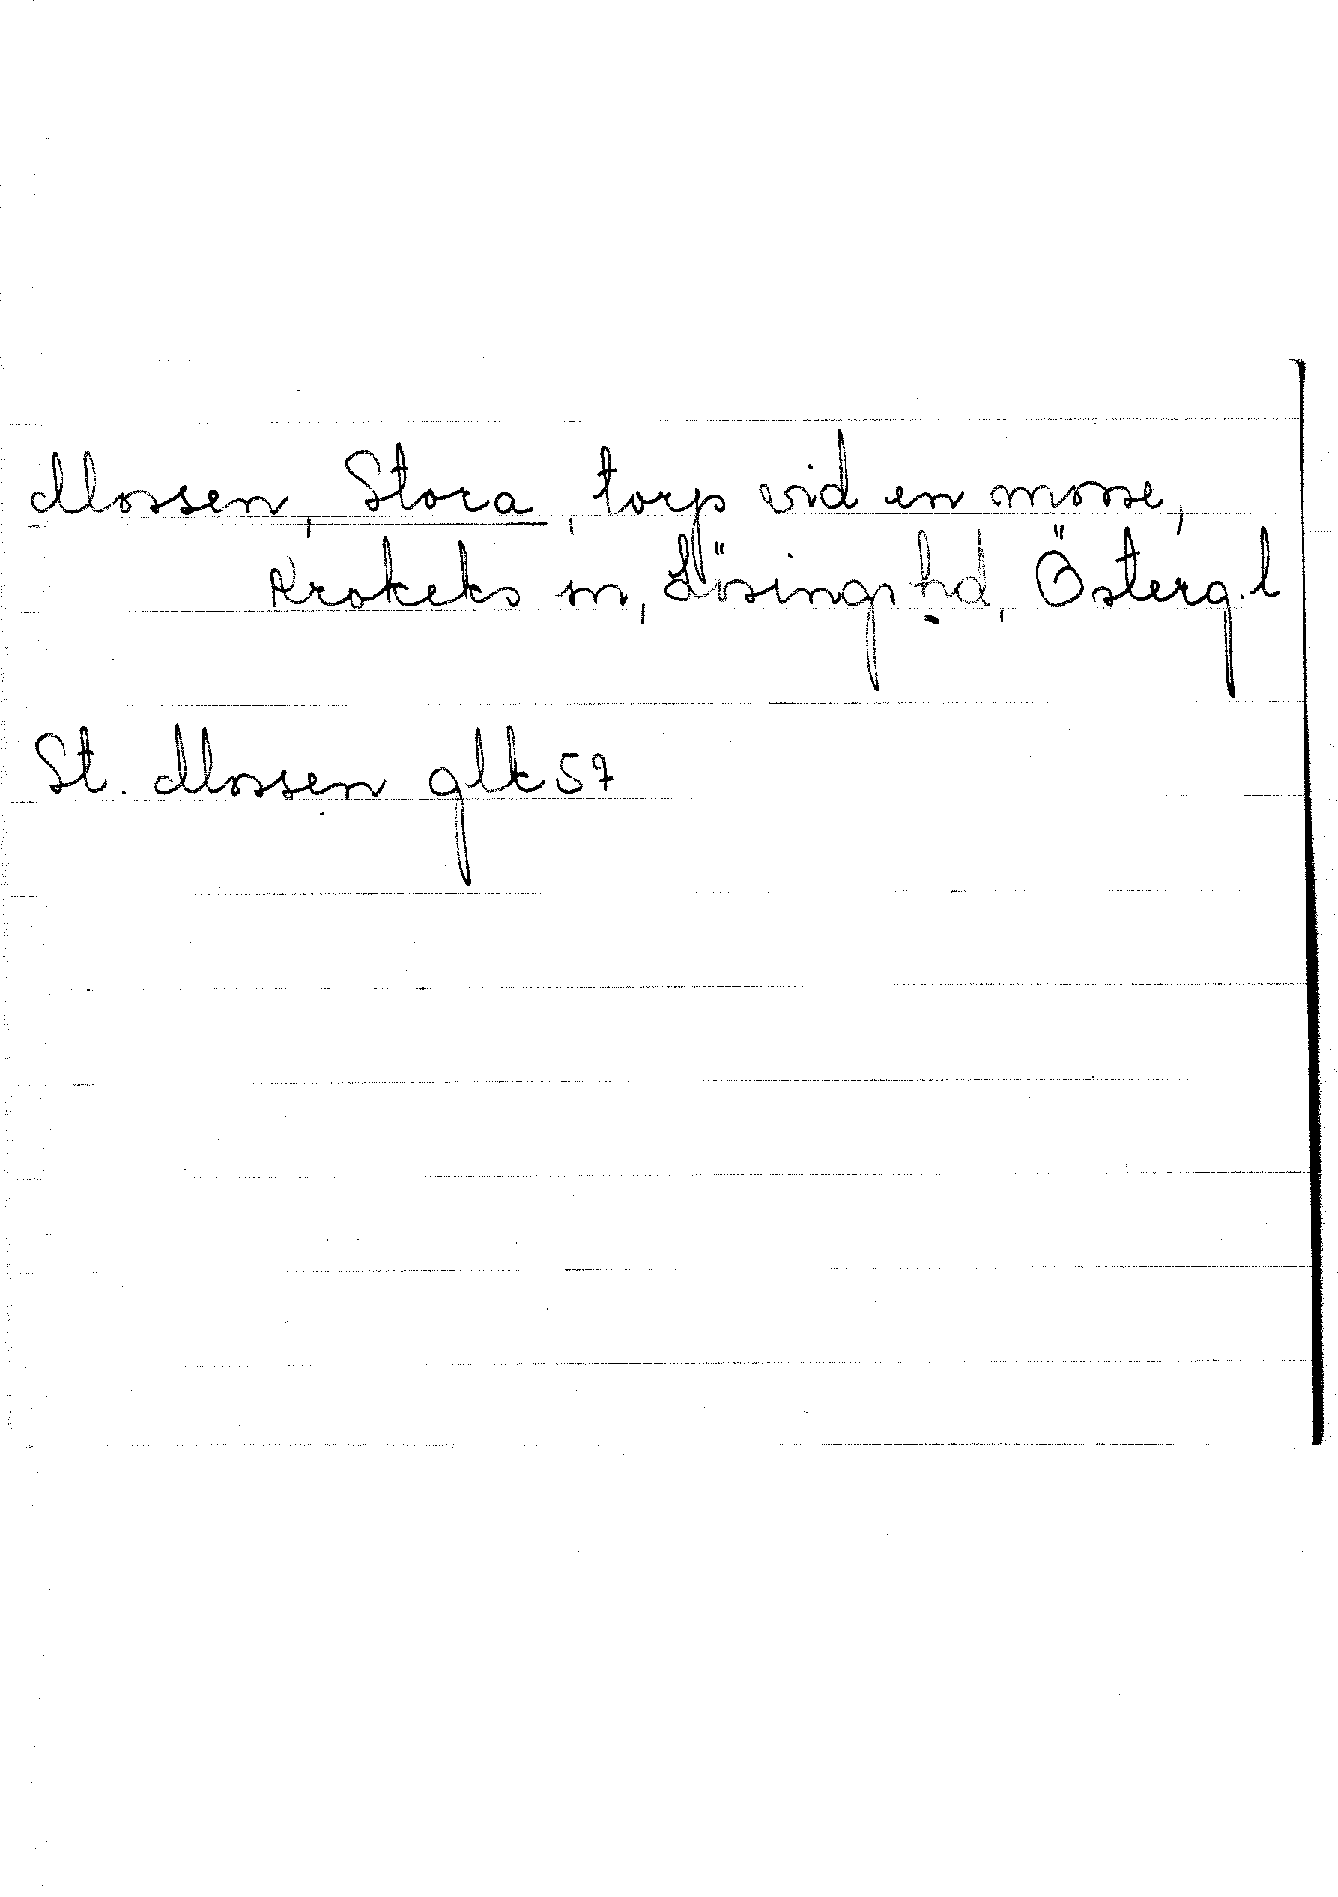 Mossen, Stora, torp vid en mosse,
Krokeks sn, Lösings hd, Österg. l
St. Mossen glk 57